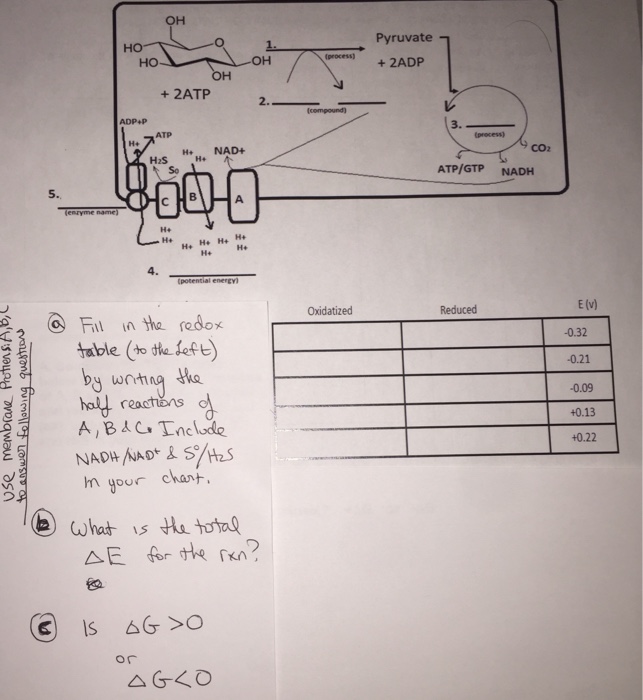 OH
HO
HO
O
OH
OH
+ 2ATP
1.
(process)
Pyruvate
+ 2ADP
2.
(compound)
3.
(process)
CO2
ATP/GTP
NADH
ADP+P
ATP
H+
H2S
So
H+
H+
NAD+
5.
(enzyme name)
C
B
A
H+
H+
H+
H+
H+
H+
H+
H+
4.
(potential energy)
Oxidatized Reduced E (v)
-0.32
-0.21
-0.09
+0.13
+0.22
USE membrane Protiens A,B,C
to answer following questions
a Fill in the redox
table (to the Left)
by writing the
half reactions of
A, B & C. Include
NADH/NAD+ & S°/H2S
in your chart.
b What is the total
ΔE for the rxn?
c Is ΔG >0
or
ΔG<0